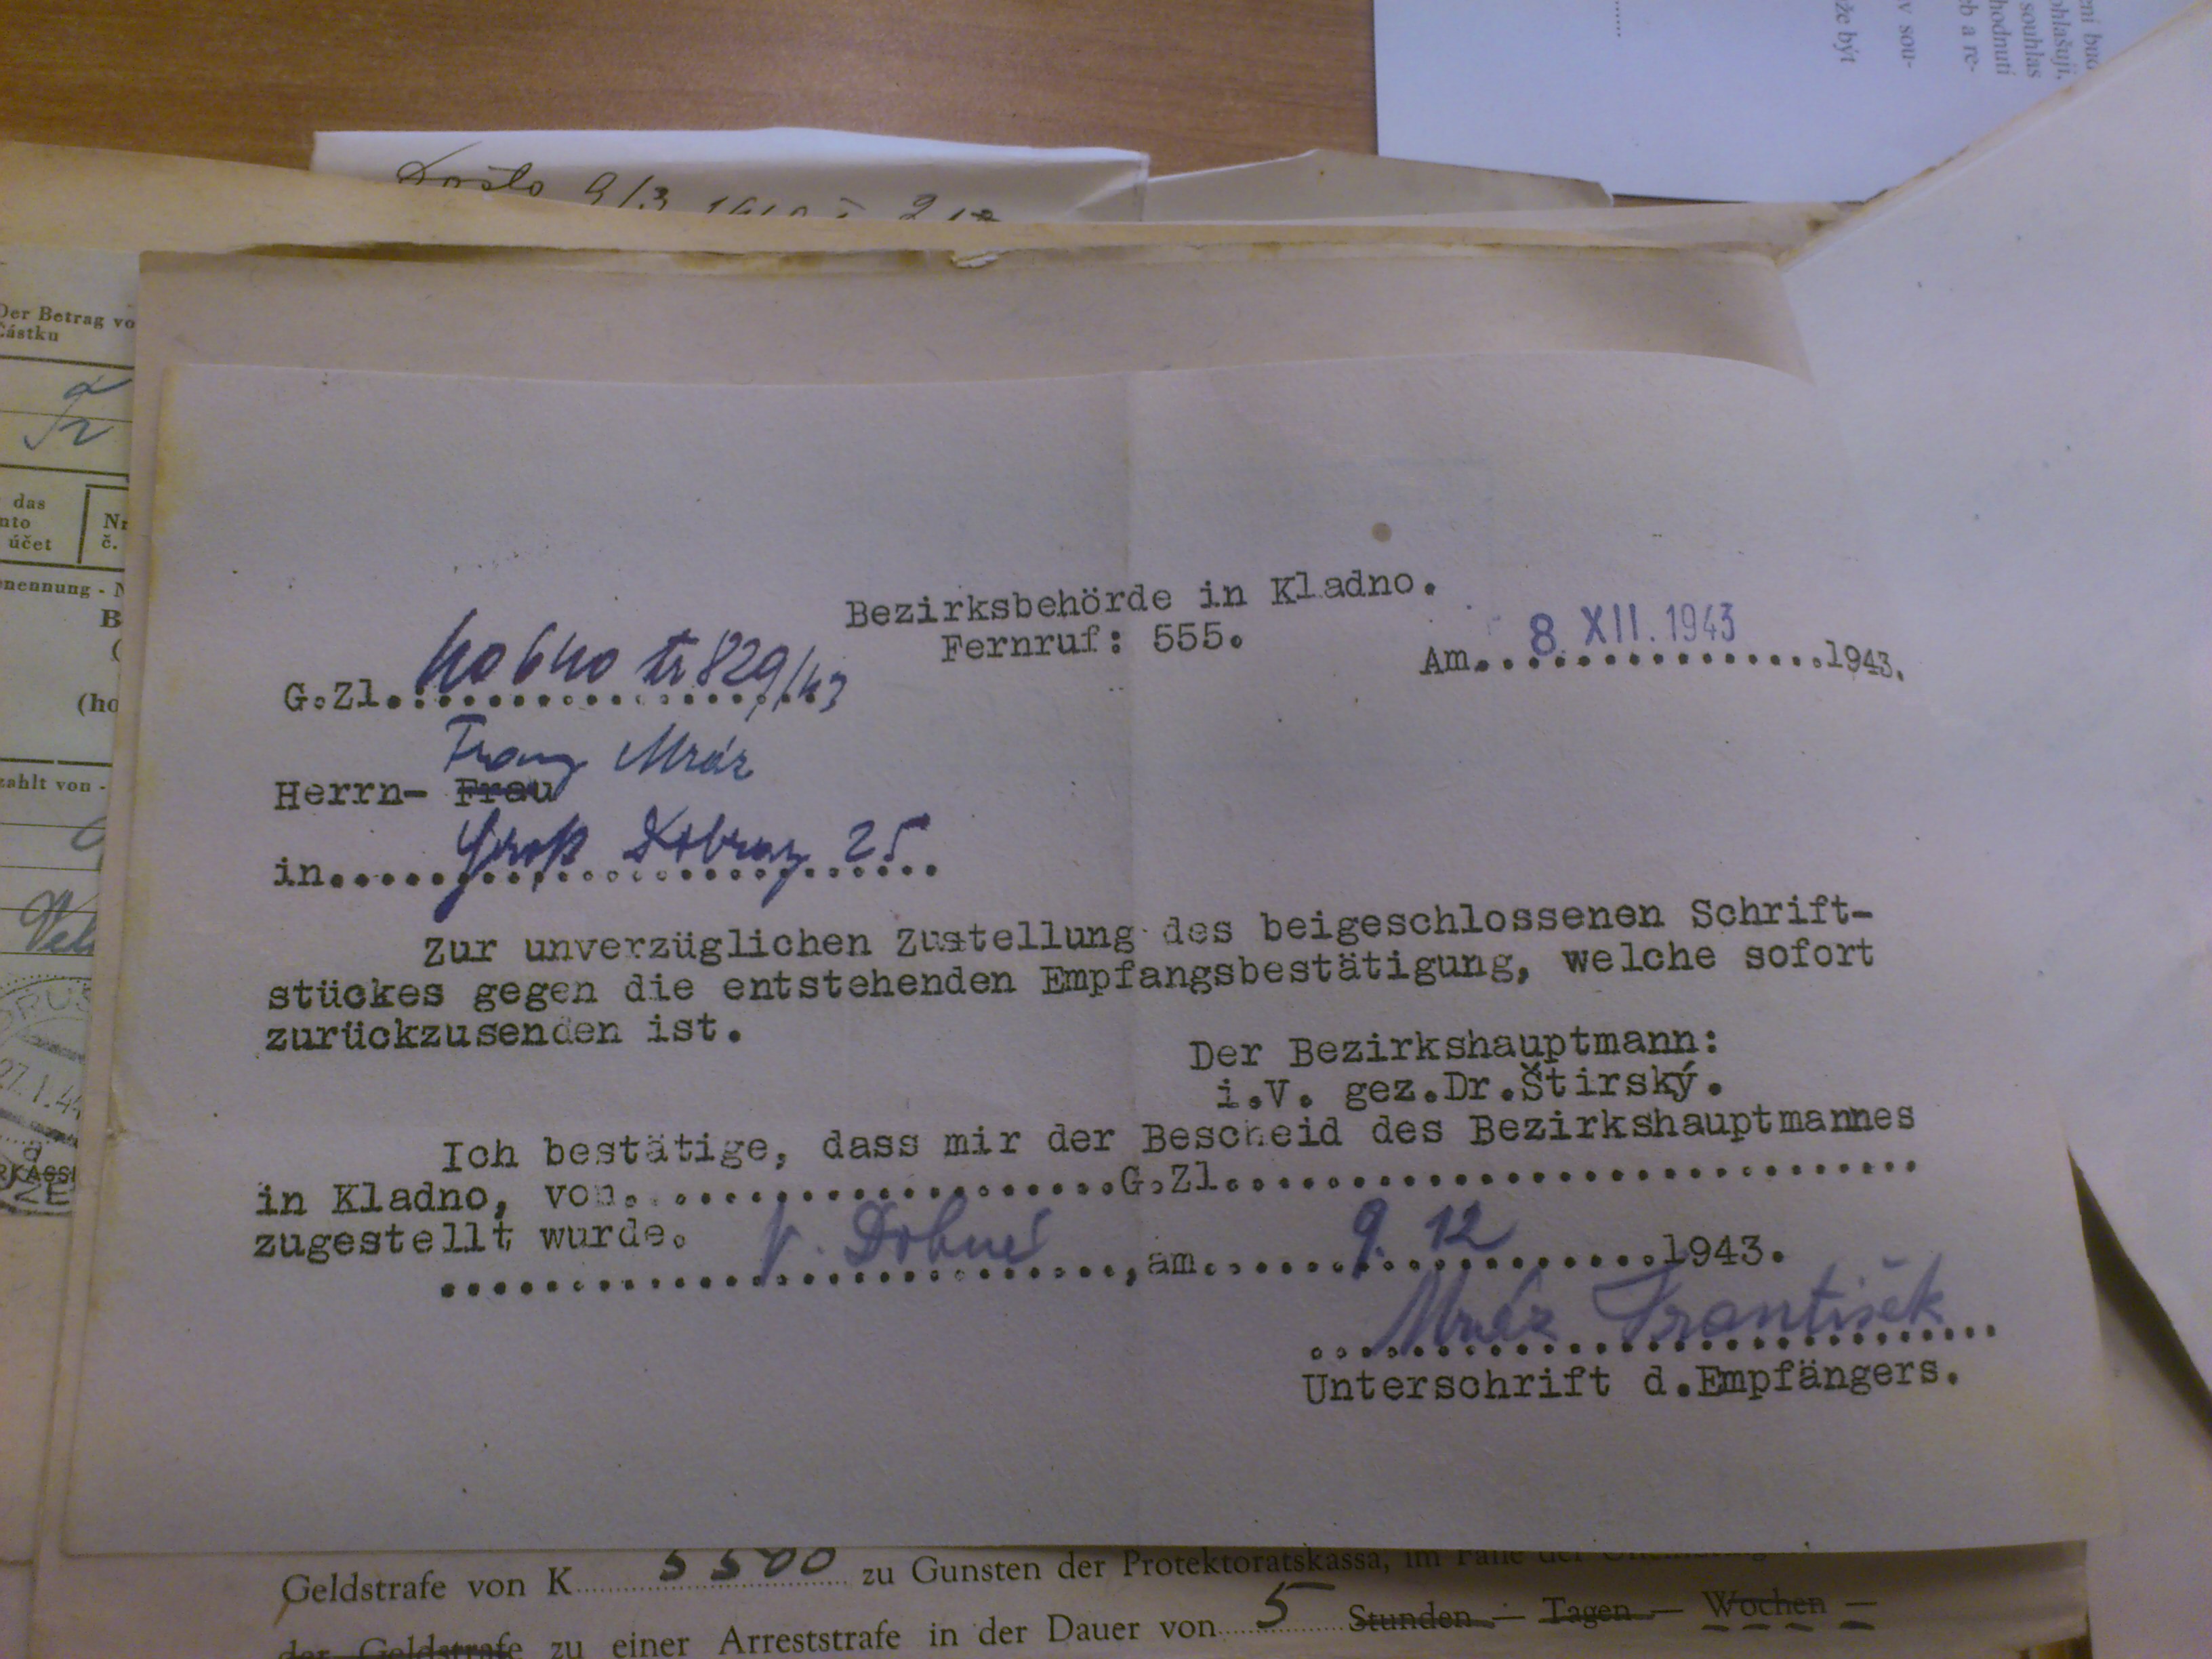 Došlo 9/3
že být
v sou-
b a re-
hodnutí
souhlas
ohlašuji,
Der Betrag vo
částku
Fr
das
nto
účet
Nr
č.
enennung - N
B
(
(ho
zahlt von -
Vel
27.1.44
Bezirksbehörde in Kladno.
Fernruf: 555.
8. XII. 1943
Am..................1943.
G.Zl. 40640 tr 829/43
Franz Mráz
Herrn- Frau
in Gross Dobray 25
Zur unverzüglichen Zustellung des beigeschlossenen Schrift-
stückes gegen die entstehenden Empfangsbestätigung, welche sofort
zurückzusenden ist.
Der Bezirkshauptmann:
i.V. gez.Dr.Štirský.
Ich bestätige, dass mir der Bescheid des Bezirkshauptmannes
in Kladno, von...................G.Zl...........................
zugestellt wurde.
V. Dobré, am 9. 12 1943.
Mráz František
Unterschrift d.Empfängers.
Geldstrafe von K 5500 zu Gunsten der Protektoratskassa, im Falle der
der Geldstrafe zu einer Arreststrafe in der Dauer von 5 Stunden — Tagen — Wochen —